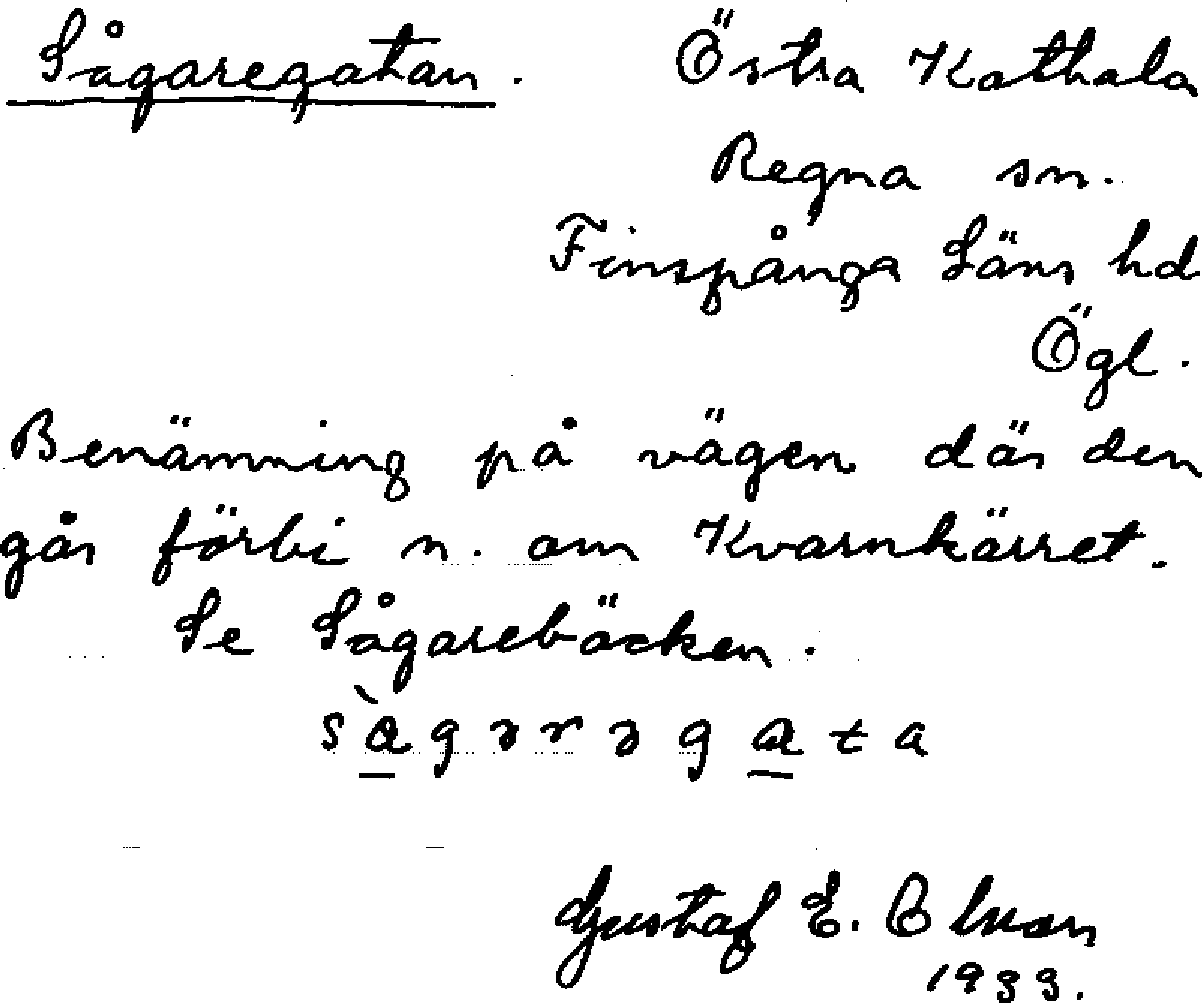 Sågaregatan. Östra Kathala
Regna sn.
Finspånga Läns hd
Ögl.
Benämning på vägen där den
går förbi n. om Kvarnkärret.
Se Sågarebäcken.
1933.
Gustaf E.